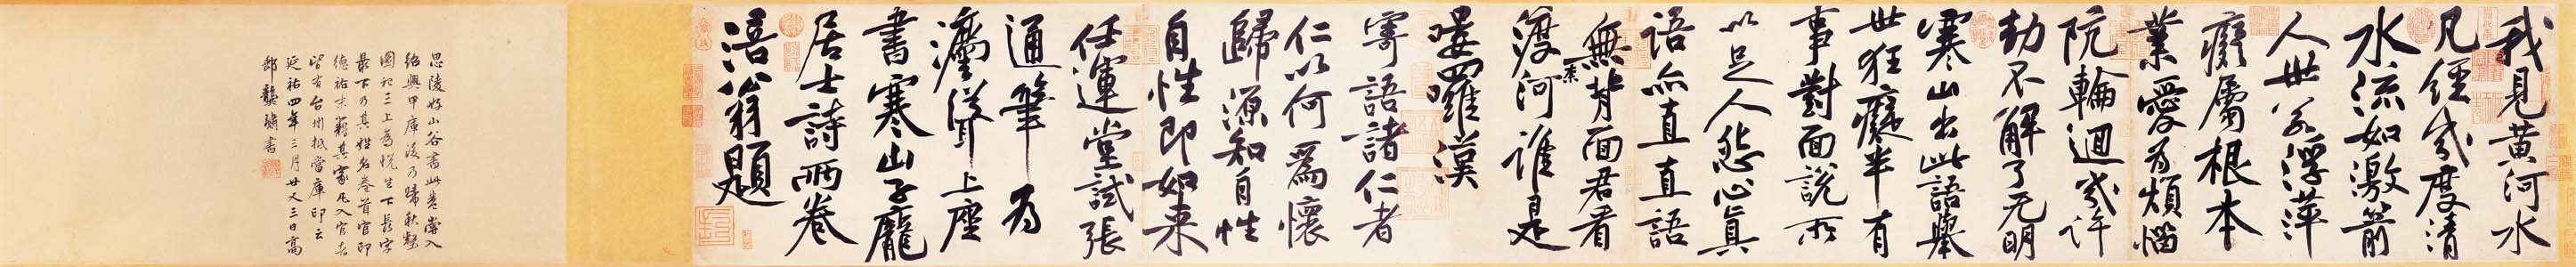 我見黃河水
凡經幾度清
水流如激箭
人世若浮萍
癡屬根本
業愛為煩惱
阬輪迴幾許
劫不解了無明
寒山出此語舉
世狂癡半有
事對面說所
以足人怨心真
語亦直直語
無背面君看
渡奈河誰是
嘍羅漢
寄語諸仁者
仁以何為懷
歸源知自性
自性即如來
任運堂試張
通筆為
法聳上座
書寒山子龐
居士詩兩卷
涪翁題
思陵好山谷書此卷嘗入
紹興甲庫後乃歸秋壑
圖記三上為悅生下長字
最下乃其姓名卷首官印
德祐末籍其家凡入官者
皆有台州抵當庫印云
延祐四年三月廿又三日高
郵龔璛書